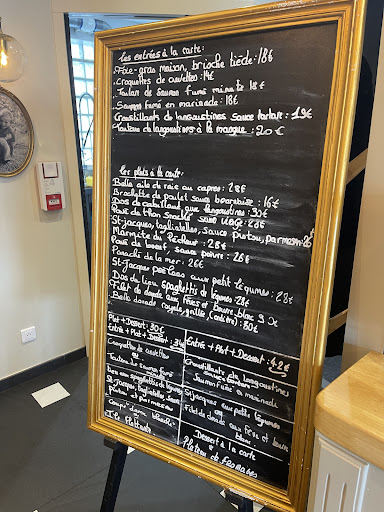 Les entrées à la carte:
Foie-gras maison, brioche tiède: 18€
Croquettes de crevettes: 14€
Toulon de Saumon fumé minute 18€
Saumon fumé en marinade: 18€
Croustillants de langoustines sauce tartare: 19€
de langoustines à la mangue: 20€
Les plats à la carte:
Belle aile de raie au capres: 28€
Brochette de poulet sauce bearnaise: 16€
Dos de cabillaud aux langoustines: 30€
Pavé de thon snacké sauce 28€
St-Jacques, tagliatelles, sauce Pistou, parmesan
Marmite du Pêcheur: 28€
Pavé de boeuf, sauce poivre: 28€
Panaché de la mer: 26€
St-Jacques poêlées aux petit légumes: 28€
Dos de lieu spaghettis de légumes 28€
Filet de dorade aux fèves et beurre blanc
Belle dorade royale, grillée, (entière): 30€
Plat + Dessert: 30€
Entrée + Plat + Dessert: 34€
Croquettes de crevettes
ou
Toulon de Saumon fumé
spaghettis de légumes
St-Jacques, tagliatelle, sauce
Pistou et parmesan
Entrée + Plat + Dessert: 42€
Croustillants de langoustines
Saumon fumé en marinade
St-Jacques aux petits légumes
ou
Filet de dorade aux fèves et beurre
blanc
Dessert à la carte
ou
Plateau de fromages